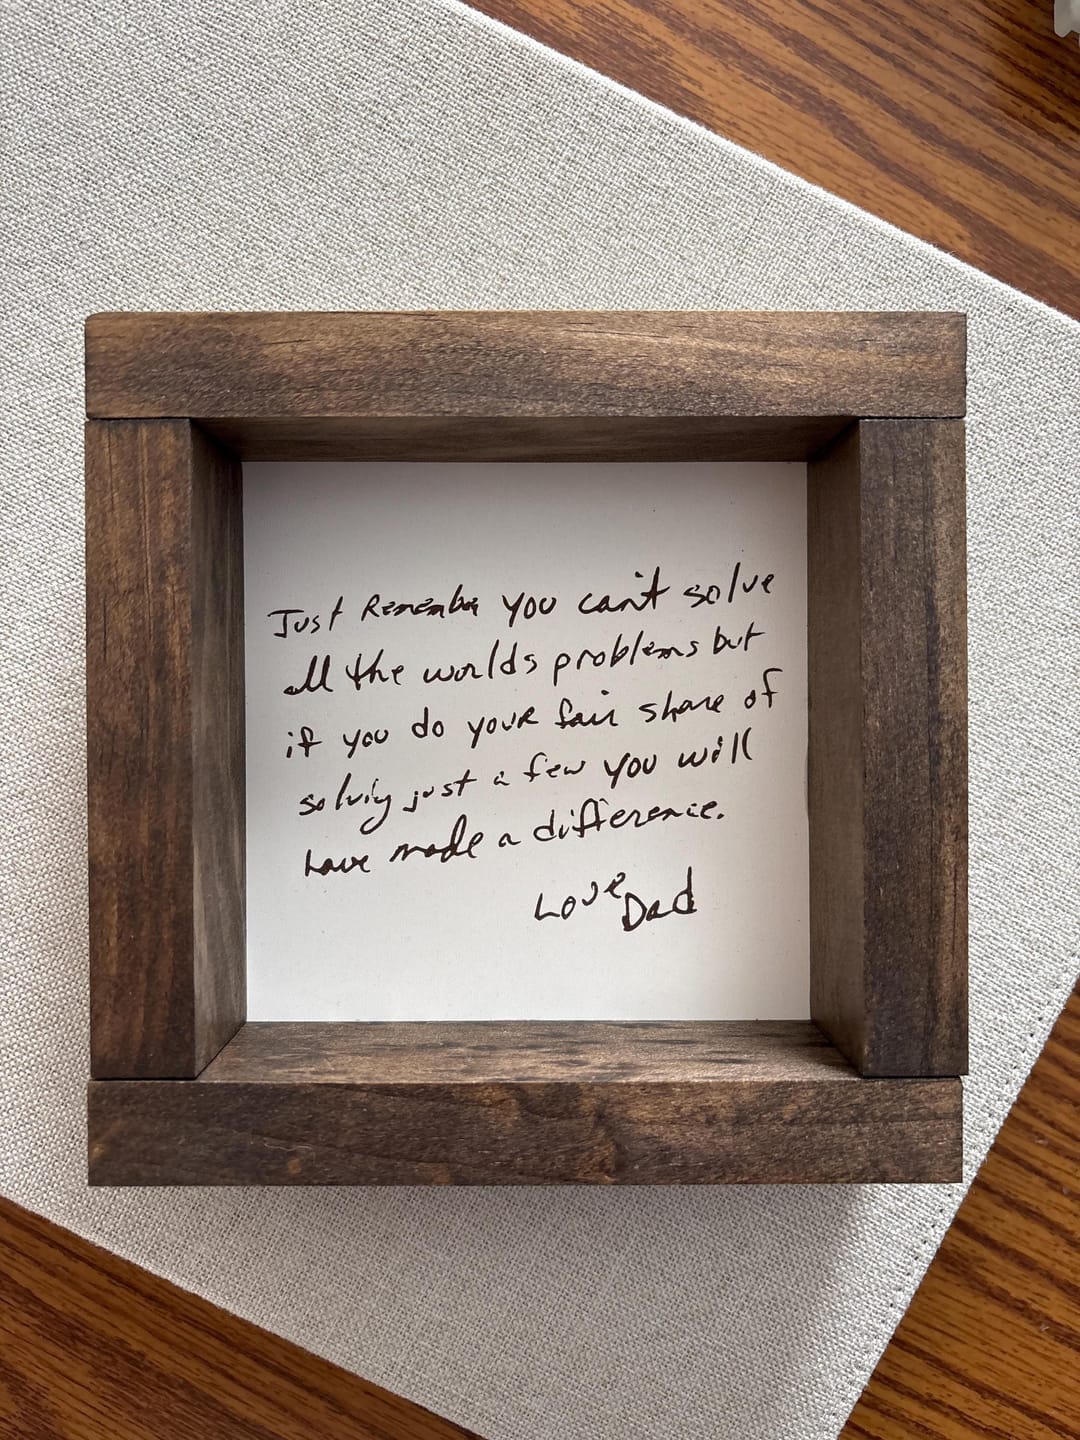 Just Remember you can't solve
all the worlds problems but
if you do your fair share of
solving just a few you will
have made a difference.
Love Dad